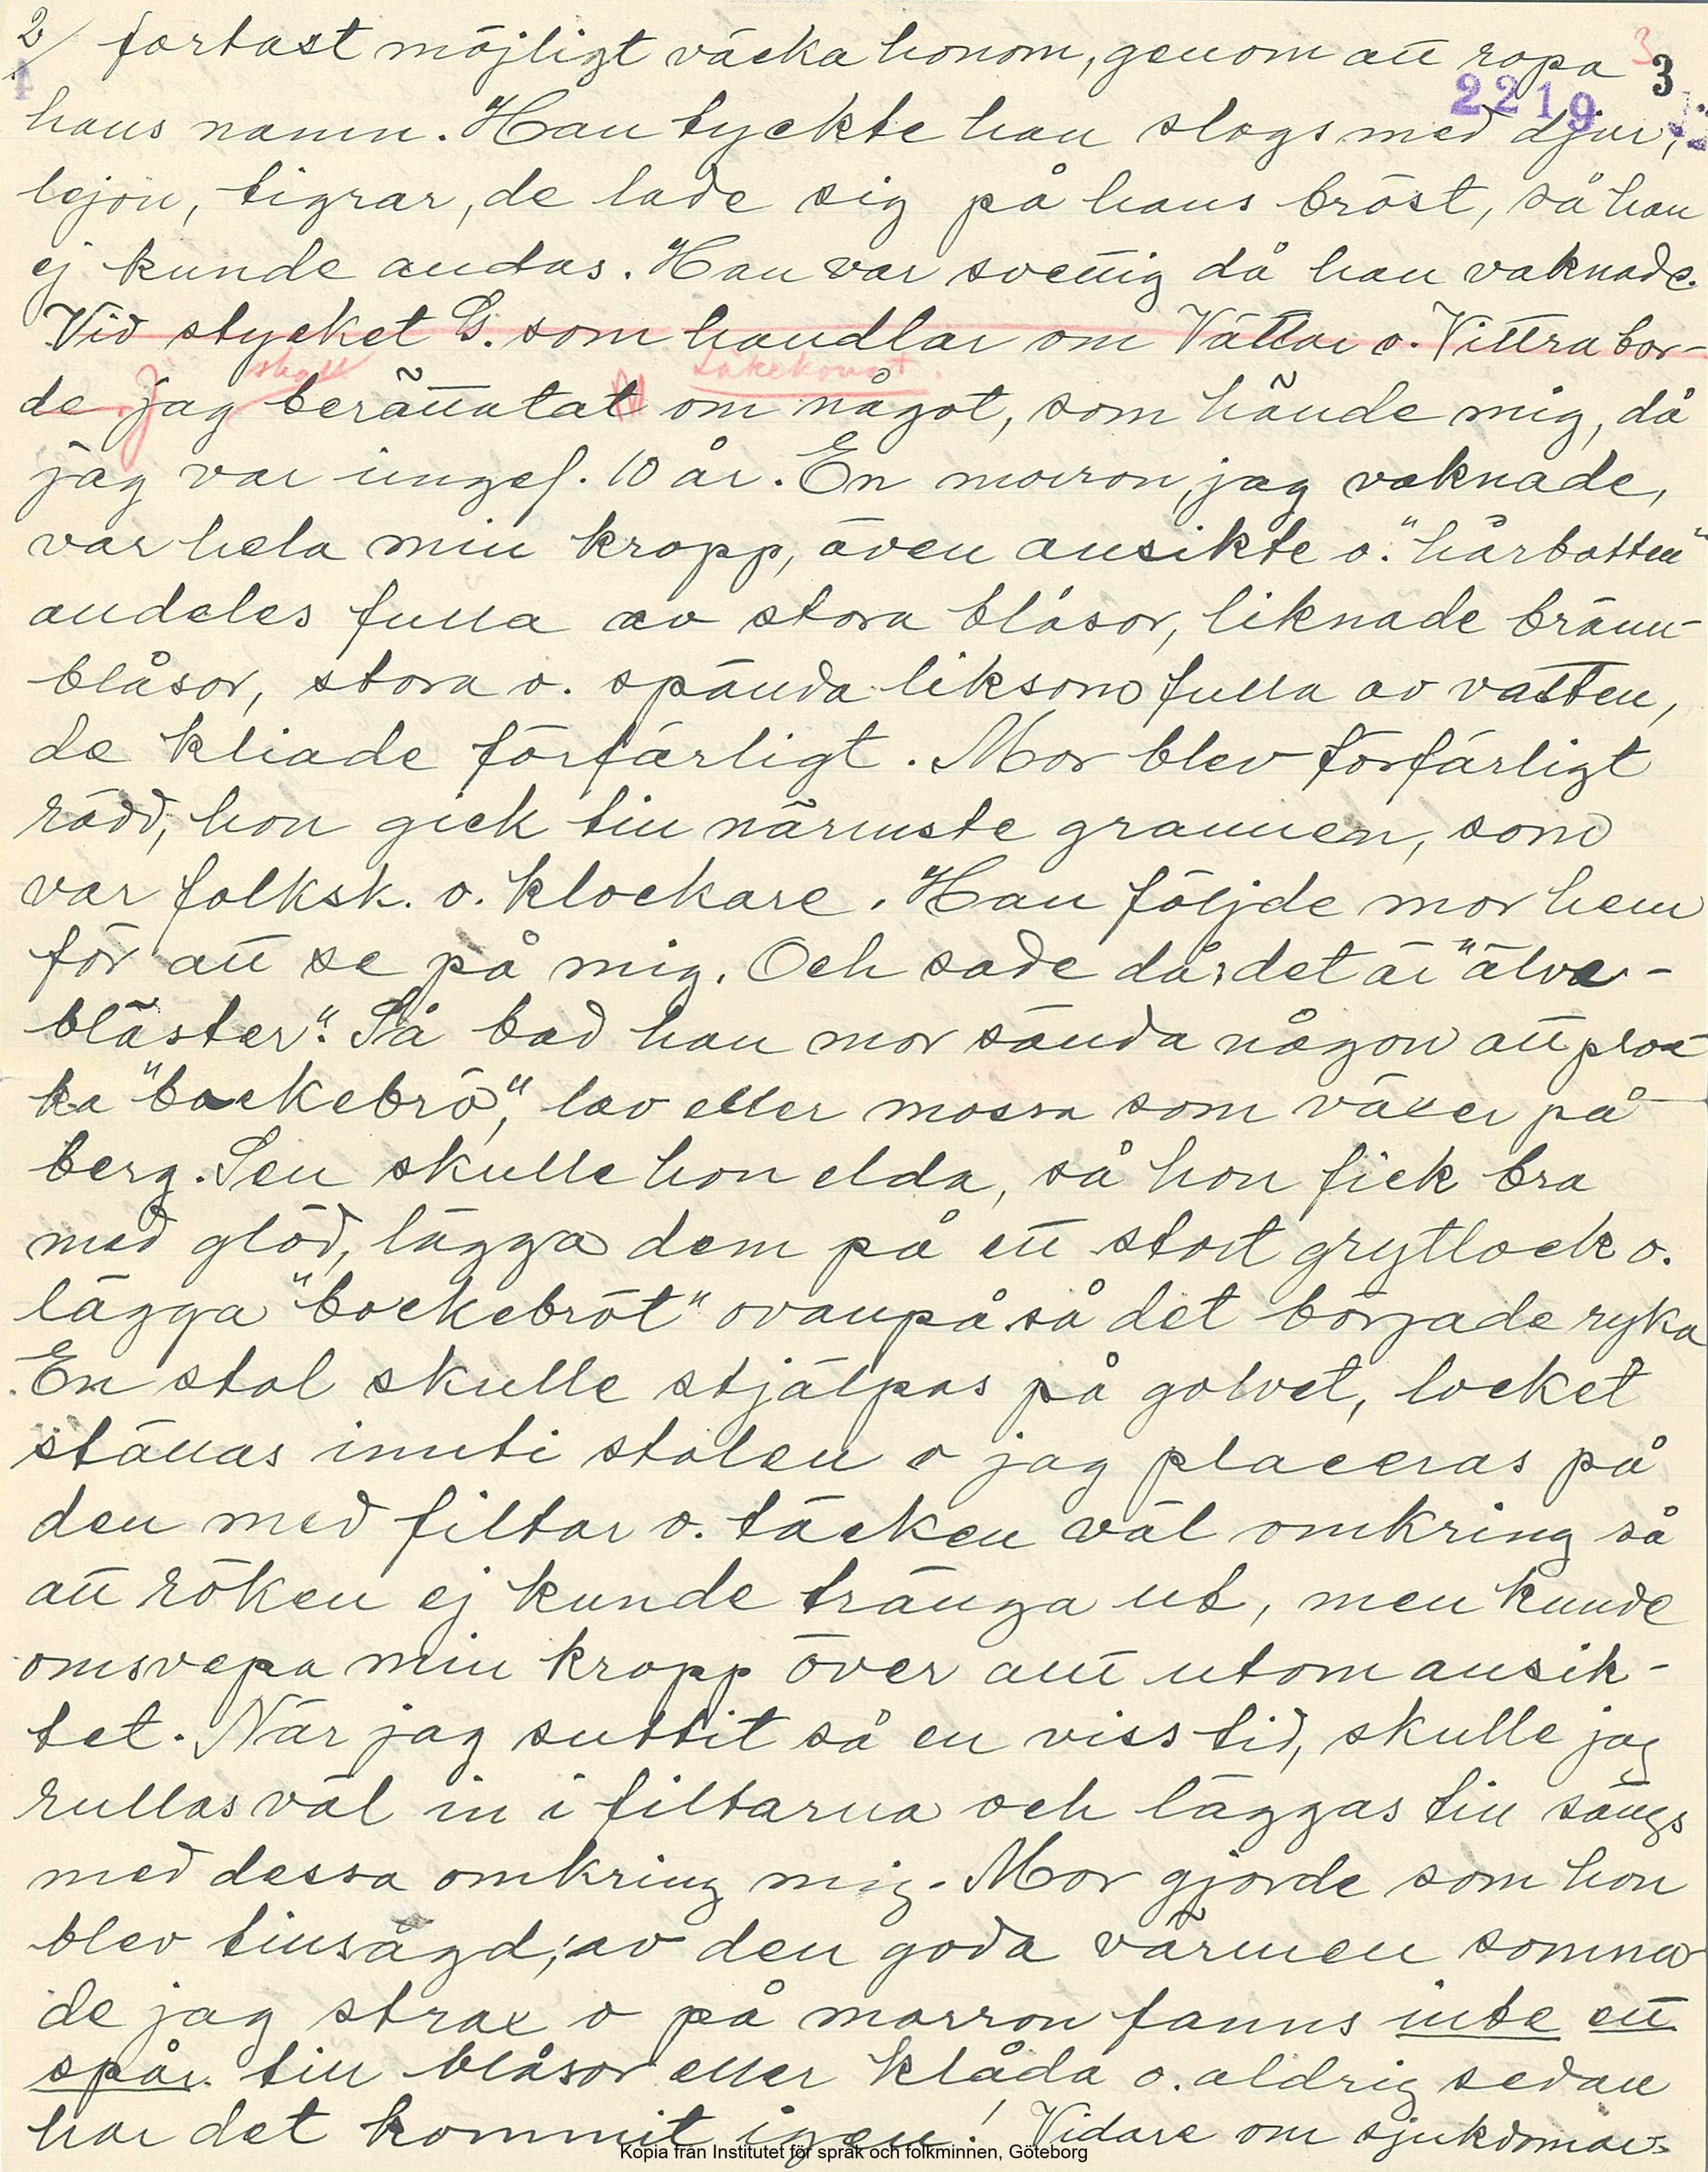 2/ fortast möjligt väcka honom, genom att ropa 3 3
2219
hans namn. Han tyckte han slogs med djur,
lejon, tigrar, de lade sig på hans bröst, så han
ej kunde andas. Han var svettig då han vaknade.
Vid stycket G. som handlar om Vättar o. Vittra bor-
skall Läkekonst.
de jag berättatat om något, som hände mig, då
jag var ungef. 10 år. En morron, jag vaknade,
var hela min kropp, även ansikte o. "hårbotten"
andeles fulla av stora blåsor, liknade bränn-
blåsor, stora o. spända liksom fulla av vatten,
de kliade förfärligt. Mor blev förfärligt
rädd, hon gick till närmste grannen, som
var folksk. o. klockare. Han följde mor hem
för att se på mig. Och sade då, det är "älva-
bläster". Så bad han mor sända någon att ploc-
ka "bockebrö", lav eller mossa som växer på
berg. Sen skulle hon elda, så hon fick bra
med glöd, lägga dem på ett stort grytlock o.
lägga "bockebröt" ovanpå så det började ryka
. En stol skulle stjälpas på golvet, locket
ställas inuti stolen o jag placeras på
den med filtar o. täcken väl omkring så
att röken ej kunde tränga ut, men kunde
omsvepa min kropp över allt utom ansik-
tet. När jag suttit så en viss tid, skulle jag
rullas väl in i filtarna och läggas till sängs
med dessa omkring mig. Mor gjorde som hon
blev tillsagd; av den goda värmen somna-
de jag strax o på morron fanns inte ett
spår till blåsor eller klåda o. aldrig sedan
har det kommit igen! Vidare om sjukdomar:
Kopia från Institutet för språk och folkminnen, Göteborg